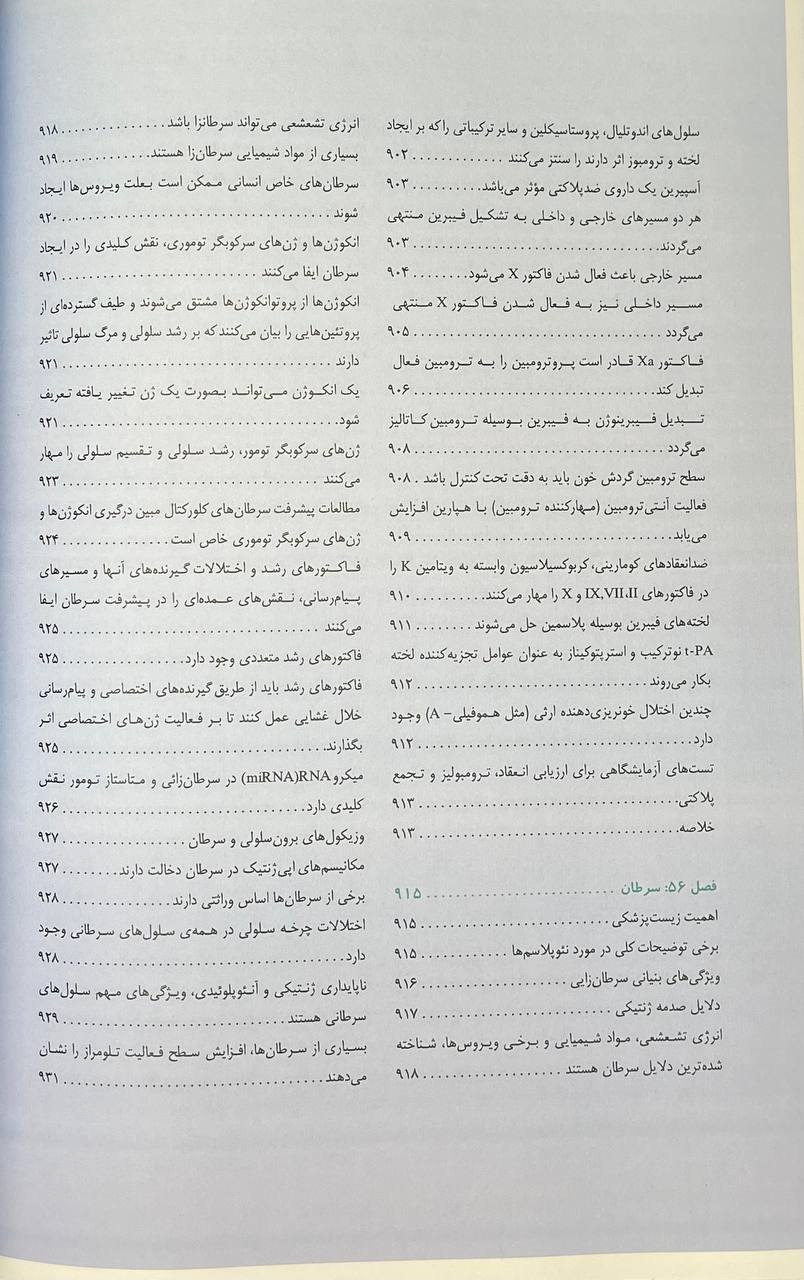 سلول‌های اندوتلیال، پروستاسیکلین و سایر ترکیباتی را که بر ایجاد
لخته و ترومبوز اثر دارند را سنتز می‌کنند ............. ۹۰۲
آسپیرین یک داروی ضدپلاکتی مؤثر می‌باشد.......... ۹۰۳
هر دو مسیرهای خارجی و داخلی به تشکیل فیبرین منتهی
می‌گردند.................................... ۹۰۳
مسیر خارجی باعث فعال شدن فاکتور X می‌شود........ ۹۰۴
مسیر داخلی نیز به فعال شدن فاکتور X منتهی
می‌گردد .................................... ۹۰۵
فاکتور Xa قادر است پروترومبین را به ترومبین فعال
تبدیل کند.................................... ۹۰۶
تبدیل فیبرینوژن به فیبرین بوسیله ترومبین کاتالیز
می‌گردد .................................... ۹۰۸
سطح ترومبین گردش خون باید به دقت تحت کنترل باشد . ۹۰۸
فعالیت آنتی‌ترومبین (مهارکننده ترومبین) با هپارین افزایش
می‌یابد.................................... ۹۰۹
ضدانعقادهای کومارینی، کربوکسیلاسیون وابسته به ویتامین K را
در فاکتورهای IX,VII،II و X را مهار می‌کنند.......... ۹۱۰
لخته‌های فیبرین بوسیله پلاسمین حل می‌شوند ........ ۹۱۱
t-PA نوترکیب و استرپتوکیناز به عنوان عوامل تجزیه‌کننده لخته
بکار می‌روند .................................... ۹۱۲
چندین اختلال خونریزی‌دهنده ارثی (مثل هموفیلی- A) وجود
دارد.................................... ۹۱۲
تست‌های آزمایشگاهی برای ارزیابی انعقاد، ترومبولیز و تجمع
پلاکتی.................................... ۹۱۳
خلاصه.................................... ۹۱۳
فصل ۵۶: سرطان ........................ ۹۱۵
اهمیت زیست‌پزشکی........................ ۹۱۵
برخی توضیحات کلی در مورد نئوپلاسم‌ها ............ ۹۱۵
ویژگی‌های بنیانی سرطان‌زایی .................... ۹۱۶
دلایل صدمه ژنتیکی ........................ ۹۱۷
انرژی تشعشعی، مواد شیمیایی و برخی ویروس‌ها، شناخته
شده‌ترین دلایل سرطان هستند .................... ۹۱۸
انرژی تشعشعی می‌تواند سرطانزا باشد............... ۹۱۸
بسیاری از مواد شیمیایی سرطان‌زا هستند............. ۹۱۹
سرطان‌های خاص انسانی ممکن است بعلت ویروس‌ها ایجاد
شوند .................................... ۹۲۰
انکوژن‌ها و ژن‌های سرکوبگر توموری، نقش کلیدی را در ایجاد
سرطان ایفا می‌کنند ........................ ۹۲۱
انکوژن‌ها از پروتوانکوژن‌ها مشتق می‌شوند و طیف گسترده‌ای از
پروتئین‌هایی را بیان می‌کنند که بر رشد سلولی و مرگ سلولی تاثیر
دارند .................................... ۹۲۱
یک انکوژن می‌تواند بصورت یک ژن تغییر یافته تعریف
شود.................................... ۹۲۱
ژن‌های سرکوبگر تومور، رشد سلولی و تقسیم سلولی را مهار
می‌کنند .................................... ۹۲۳
مطالعات پیشرفت سرطان‌های کلورکتال مبین درگیری انکوژن‌ها و
ژن‌های سرکوبگر توموری خاص است............... ۹۲۴
فاکتورهای رشد و اختلالات گیرنده‌های آنها و مسیرهای
پیام‌رسانی، نقش‌های عمده‌ای را در پیشرفت سرطان ایفا
می‌کنند .................................... ۹۲۵
فاکتورهای رشد متعددی وجود دارد.................. ۹۲۵
فاکتورهای رشد باید از طریق گیرنده‌های اختصاصی و پیام‌رسانی
خلال غشایی عمل کنند تا بر فعالیت ژن‌های اختصاصی اثر
بگذارند.................................... ۹۲۵
میکروRNA(miRNA) در سرطان‌زائی و متاستاز تومور نقش
کلیدی دارد.................................... ۹۲۶
وزیکول‌های برون‌سلولی و سرطان .................. ۹۲۷
مکانیسم‌های اپی‌ژنتیک در سرطان دخالت دارند ........ ۹۲۷
برخی از سرطان‌ها اساس وراثتی دارند............... ۹۲۸
اختلالات چرخه سلولی در همه‌ی سلول‌های سرطانی وجود
دارد.................................... ۹۲۸
ناپایداری ژنتیکی و آنئوپلوئیدی، ویژگی‌های مهم سلول‌های
سرطانی هستند ........................ ۹۲۹
بسیاری از سرطان‌ها، افزایش سطح فعالیت تلومراز را نشان
می‌دهند.................................... ۹۳۱